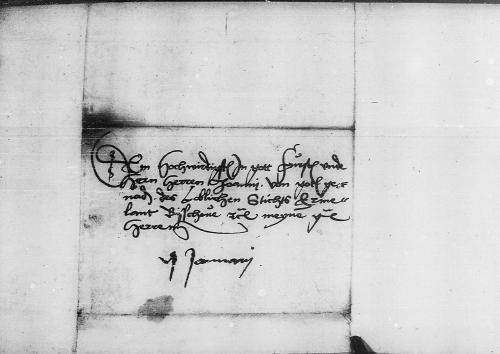 Dem Hochwirdigsten In gott Fürsten unde
Hern Herren Joanni. von gots gna
naden des Loblichen Stichts Erme-
lant Bisschove meyne
Herren
Januarij